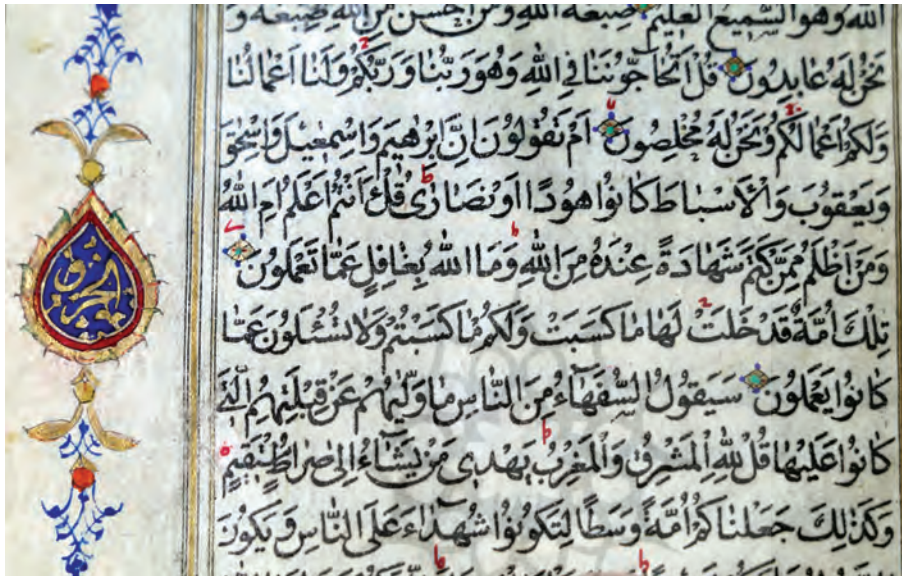 الله وَهُوَ السَّمِيعُ الْعَلِيمُ صِبْغَةَ اللهِ وَمَنْ اَحْسَنُ مِنَ اللهِ صِبْغَةً وَ
نَحْنُ لَهُ عَابِدُونَ قُلْ اَتُحَاجُّونَنَا فِي اللهِ وَهُوَ رَبُّنَا وَرَبُّكُمْ وَلَنَا اَعْمَالُنَا
وَلَكُمْ اَعْمَالُكُمْ وَنَحْنُ لَهُ مُخْلِصُونَ اَمْ تَقُولُونَ اِنَّ اِبْرٰهِيمَ وَاِسْمٰعِيلَ وَاِسْحٰقَ
وَيَعْقُوبَ وَالْاَسْبَاطَ كَانُوا هُودًا اَوْ نَصَارٰى قُلْ ءَاَنْتُمْ اَعْلَمُ اَمِ اللهُ
وَمَنْ اَظْلَمُ مِمَّنْ كَتَمَ شَهَادَةً عِنْدَهُ مِنَ اللهِ وَمَا اللهُ بِغَافِلٍ عَمَّا تَعْمَلُونَ
تِلْكَ اُمَّةٌ قَدْ خَلَتْ لَهَا مَا كَسَبَتْ وَلَكُمْ مَا كَسَبْتُمْ وَلَا تُسْئَلُونَ عَمَّا
كَانُوا يَعْمَلُونَ سَيَقُولُ السُّفَهَاءُ مِنَ النَّاسِ مَا وَلّٰيهُمْ عَنْ قِبْلَتِهِمُ الَّتِي
كَانُوا عَلَيْهَا قُلْ لِلّٰهِ الْمَشْرِقُ وَالْمَغْرِبُ يَهْدِي مَنْ يَشَاءُ اِلٰى صِرَاطٍ مُسْتَقِيمٍ
وَكَذٰلِكَ جَعَلْنَاكُمْ اُمَّةً وَسَطًا لِتَكُونُوا شُهَدَاءَ عَلَى النَّاسِ وَيَكُونَ